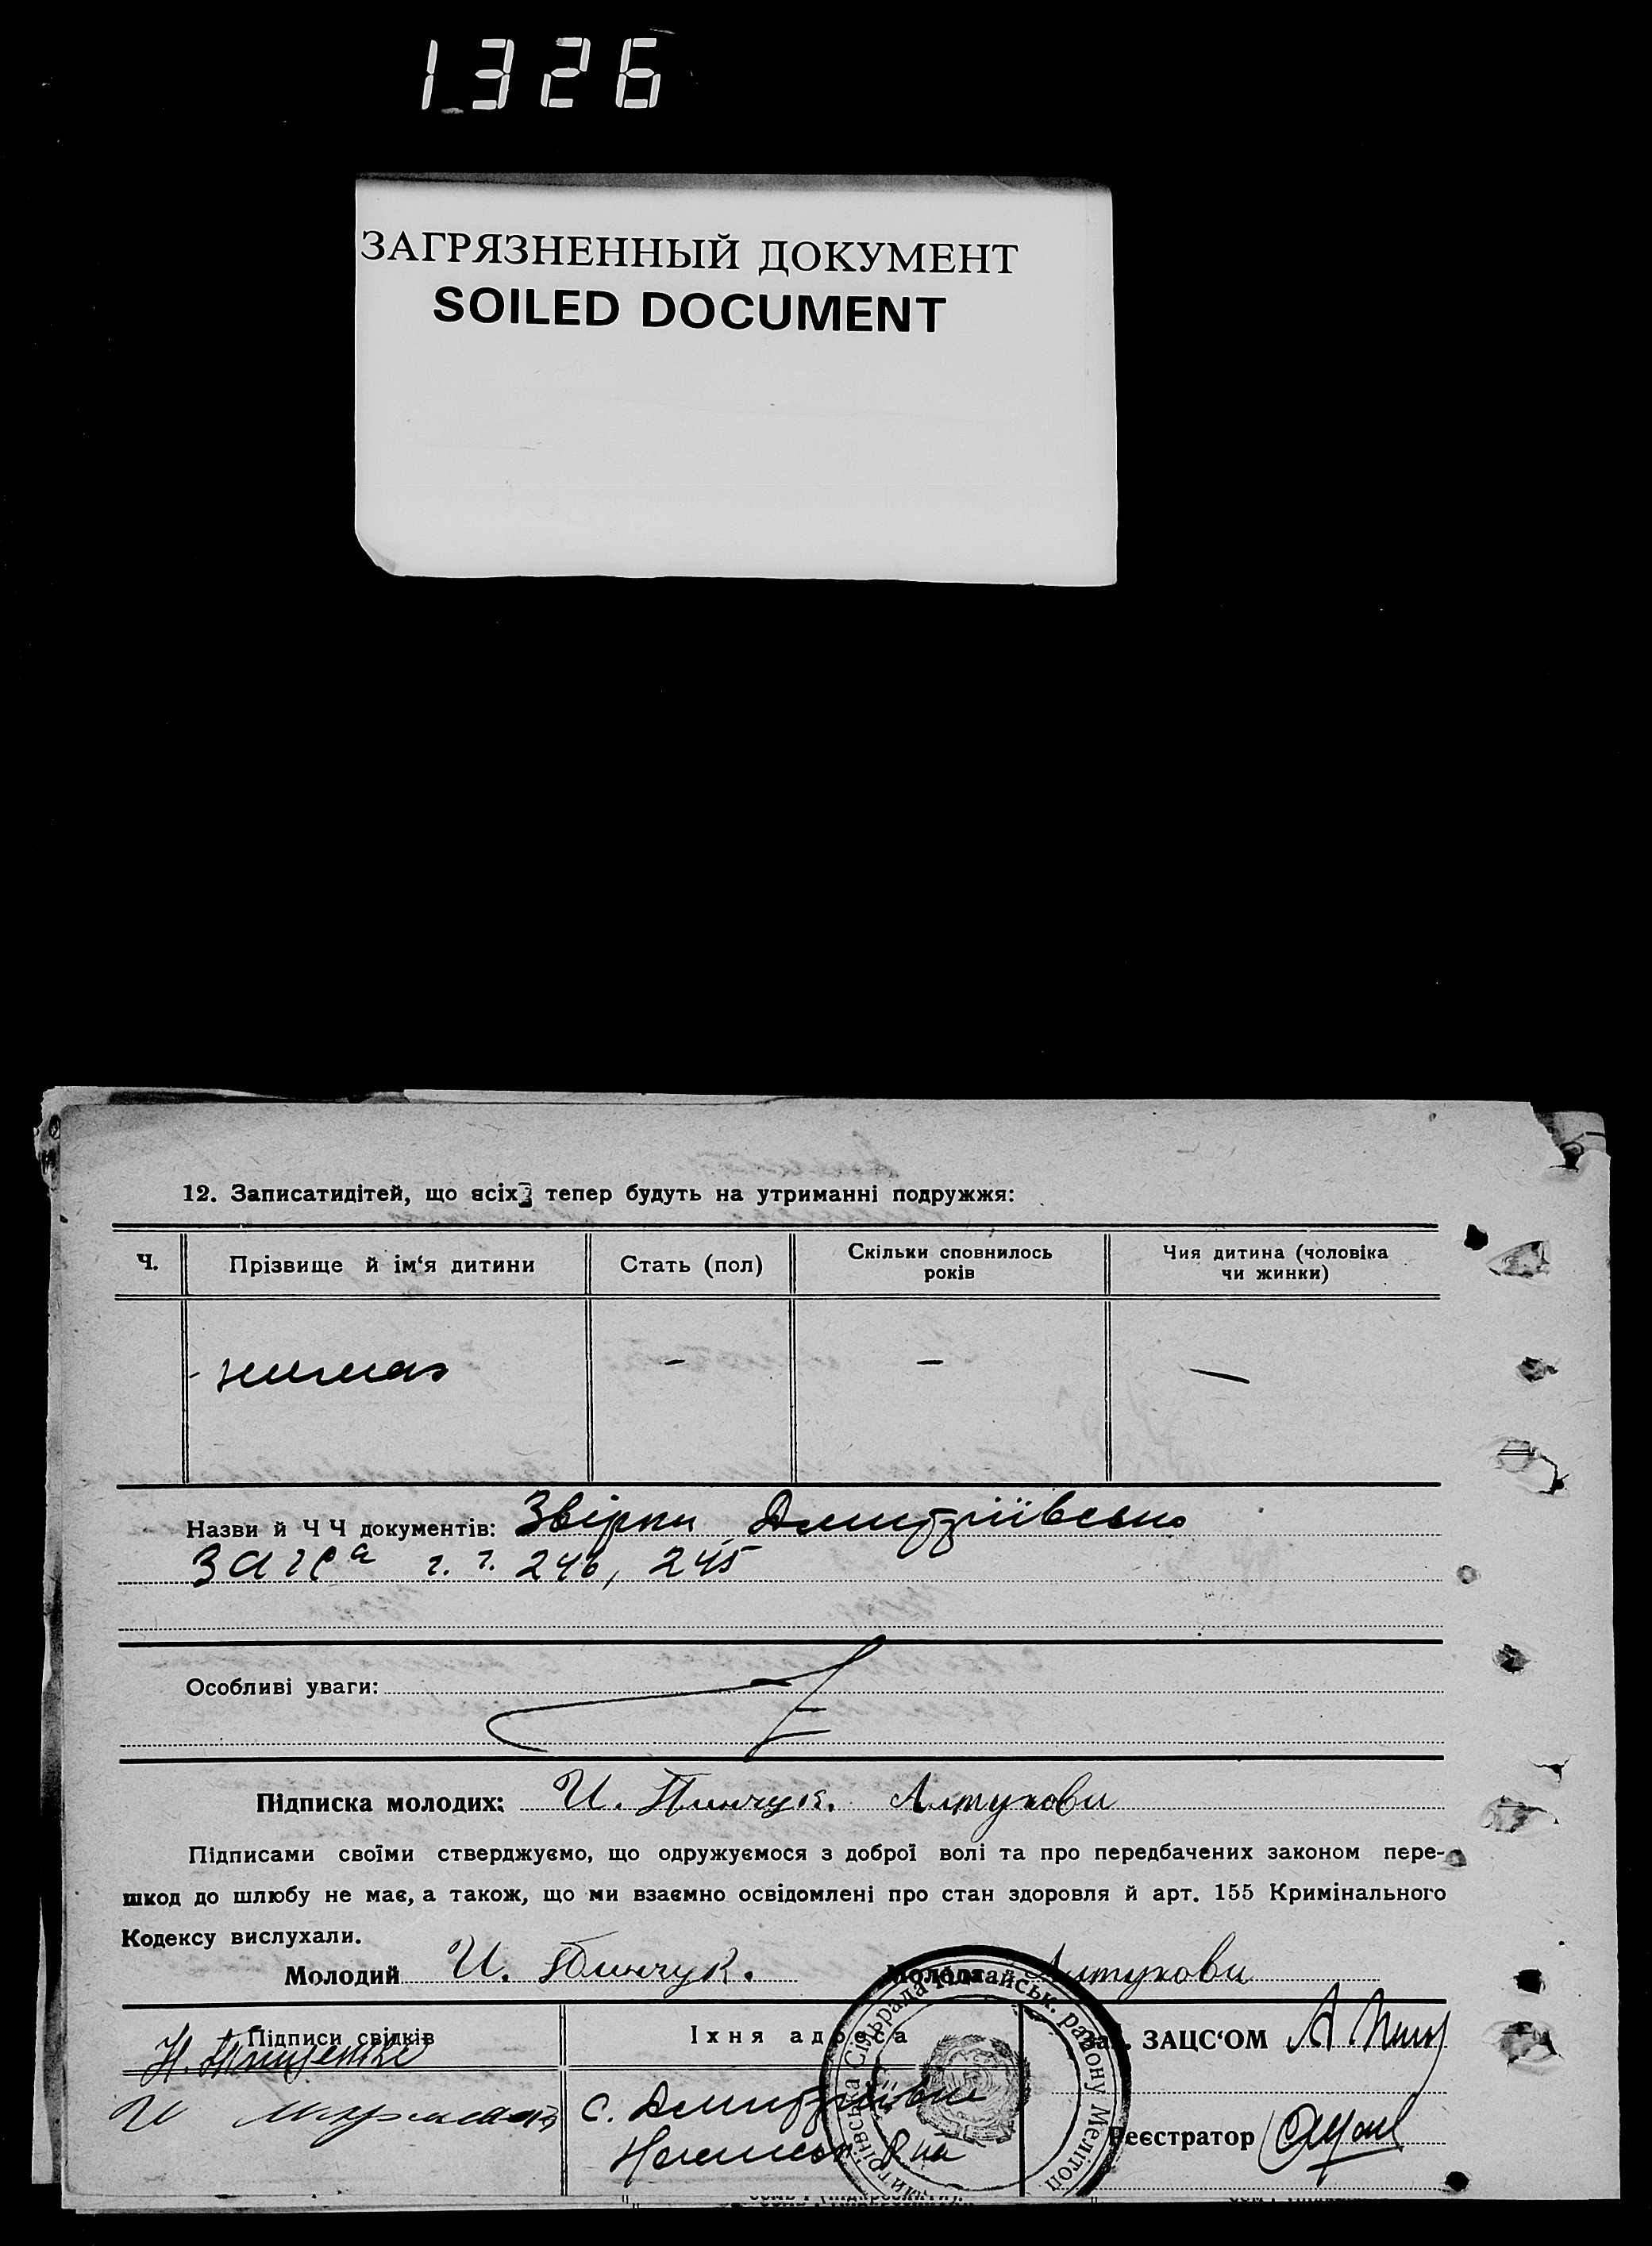 1326
ЗАГРЯЗНЕННЫЙ ДОКУМЕНТ
SOILED DOCUMENT
12. Записатидітей, що всіх тепер будуть на утриманні подружжя:
Ч.
Прізвище й ім‘я дитини
Стать (пол)
Скільки сповнилось
років
Чия дитина (чоловіка
чи жинки)
немає
—
—
—
Назви й Ч Ч документів: Звірки Дмитріївсько
ЗАГСа 246, 245
Особливі уваги:
Підписка молодих: И. Пинчук. Алтухова
Підписами своїми стверджуємо, що одружуємося з доброї волі та про передбачених законом пере-
шкод до шлюбу не має, а також, що ми взаємно освідомлені про стан здоровля й арт. 155 Кримінального
Кодексу вислухали.
Молодий И. Пинчук. Молода Алтухова
Підписи свідків
Їхня адреса
Зав. ЗАЦС‘ОМ
с. Дмитрівка
Реєстратор
Сільрада айськ. району Мелітоп